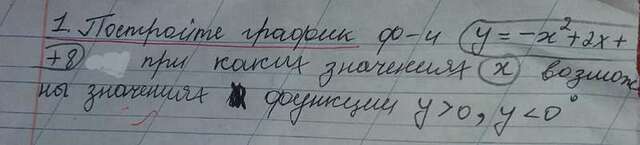 1. Постройте график ф-и y=-x²+2x+
+8 при каких значениях x возмож
ны значения функции y>0, y<0